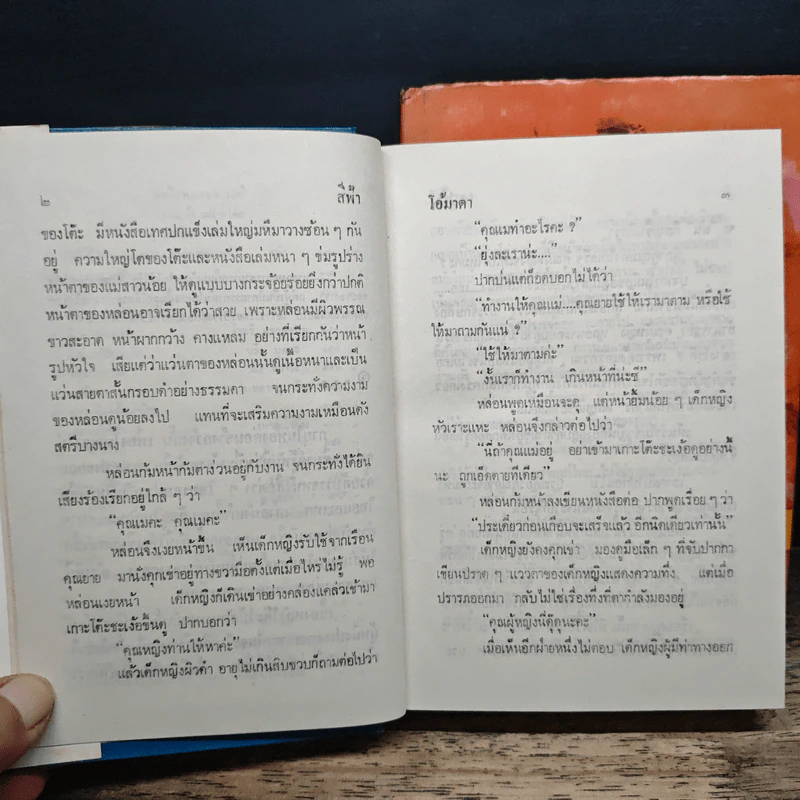 ๒ สีฟ้า
ของโต๊ะ มีหนังสือเทศปกแข็งเล่มใหญ่มหึมาวางซ้อน ๆ กัน
อยู่ ความใหญ่โตของโต๊ะและหนังสือเล่มหนา ๆ ข่มรูปร่าง
หน้าตาของแม่สาวน้อย ให้ดูแบบบางกระจ้อยร่อยยิ่งกว่าปกติ
หน้าตาของหล่อนอาจเรียกได้ว่าสวย เพราะหล่อนมีผิวพรรณ
ขาวสะอาด หน้าผากกว้าง คางแหลม อย่างที่เรียกกันว่าหน้า
รูปหัวใจ เสียแต่ว่าแว่นตาของหล่อนนั้นดูเนื้อหนาและเป็น
แว่นสายตาสั้นกรอบดำอย่างธรรมดา จนกระทั่งความงาม
ของหล่อนดูน้อยลงไป แทนที่จะเสริมความงามเหมือนดัง
สตรีบางนาง
หล่อนก้มหน้าก้มตาง่วนอยู่กับงาน จนกระทั่งได้ยิน
เสียงร้องเรียกอยู่ใกล้ ๆ ว่า
“คุณเมคะ คุณเมคะ”
หล่อนจึงเงยหน้าขึ้น เห็นเด็กหญิงรับใช้จากเรือน
คุณยาย มานั่งคุกเข่าอยู่ทางขวามือตั้งแต่เมื่อไหร่ไม่รู้ พอ
หล่อนเงยหน้า เด็กหญิงก็เดินเข่าอย่างคล่องแคล่วเข้ามา
เกาะโต๊ะชะเง้อขึ้นดู ปากบอกว่า
“คุณหญิงท่านให้หาค่ะ”
แล้วเด็กหญิงผิวดำ อายุไม่เกินสิบขวบก็ถามต่อไปว่า
โอ้มาดา ๓
“คุณเมทำอะไรคะ ?”
“ยุ่งละเราน่ะ....”
ปากบ่นแต่ก็อดบอกไม่ได้ว่า
“ทำงานให้คุณแม่....คุณยายใช้ให้เรามาตาม หรือใช้
ให้มาถามกันแน่ ?”
“ใช้ให้มาตามค่ะ”
“งั้นเราก็ทำงาน เกินหน้าที่น่ะซี”
หล่อนพูดเหมือนจะดุ แต่หน้ายิ้มน้อย ๆ เด็กหญิง
หัวเราะแหะ หล่อนจึงกล่าวต่อไปว่า
“นี่ถ้าคุณแม่อยู่ อย่าเข้ามาเกาะโต๊ะชะเง้อดูอย่างนี้
นะ ถูกเอ็ดตายทีเดียว”
หล่อนก้มหน้าลงเขียนหนังสือต่อ ปากพูดเรื่อย ๆ ว่า
“ประเดี๋ยวก่อนเกือบจะเสร็จแล้ว อีกนิดเดียวเท่านั้น”
เด็กหญิงยังคงคุกเข่า มองดูมือเล็ก ๆ ที่จับปากกา
เขียนปราด ๆ แววตาของเด็กหญิงแสดงความทึ่ง แต่เมื่อ
ปรารภออกมา กลับไม่ใช่เรื่องทึ่งที่ตากำลังมองอยู่
“คุณผู้หญิงนี่ดุ๊ดุนะคะ”
เมื่อเห็นอีกฝ่ายหนึ่งไม่ตอบ เด็กหญิงผู้มีท่าทางออก